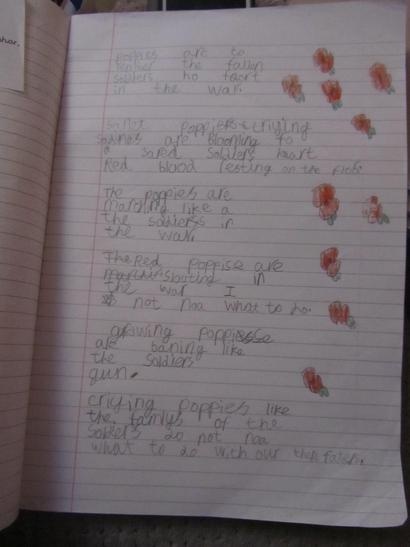 poppies are to
the fallen
soldiers ho faort
in the war.
poppies criying
are blooming to
a sored soldiers heart
Red blood resting on the
The poppies are
marching like a
the soldiers in
the war.
The Red poppise are
in
the war I
not noa what to do.
growing
are baning like
the soldiers
gun.
criying poppies like
the familys of the
solders do not noa
what to do with our